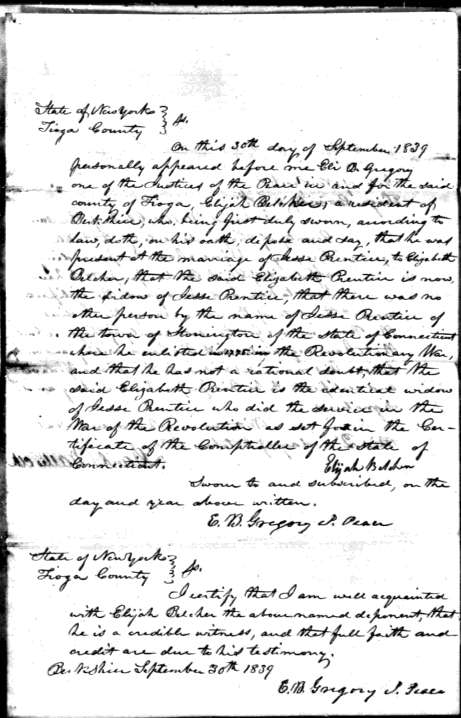 State of New York }
Tioga County } ss.
On this 30th day of September 1839
personally appeared before me Eli B. Gregory
one of the Justices of the Peace in and for the said
county of Tioga, Elijah Belcher, a resident of
Berkshire, who, being first duly sworn, according to
law, doth, on his oath, depose and say, that he was
present at the marriage of Jesse Prentice, to Elizabeth
Belcher, that the said Elizabeth Prentice is now
the widow of Jesse Prentice, that there was no
other person by the name of Jesse Prentice of
the town of Stonington of the State of Connecticut
where he enlisted in the Revolutionary War,
and that he has not a rational doubt, that the
said Elizabeth Prentice is the identical widow
of Jesse Prentice who did the service in the
War of the Revolution as set forth in the Cer-
tificate of the Comptroller of the State of
Connecticut. Elijah Belcher
Sworn to and subscribed, on the
day and year above written.
E. B. Gregory J. Peace
State of New York }
Tioga County } ss.
I certify that I am well acquainted
with Elijah Belcher the above named deponent, that
he is a credible witness, and that full faith and
credit are due to his testimony.
Berkshire September 30th 1839
E. B. Gregory J. Peace